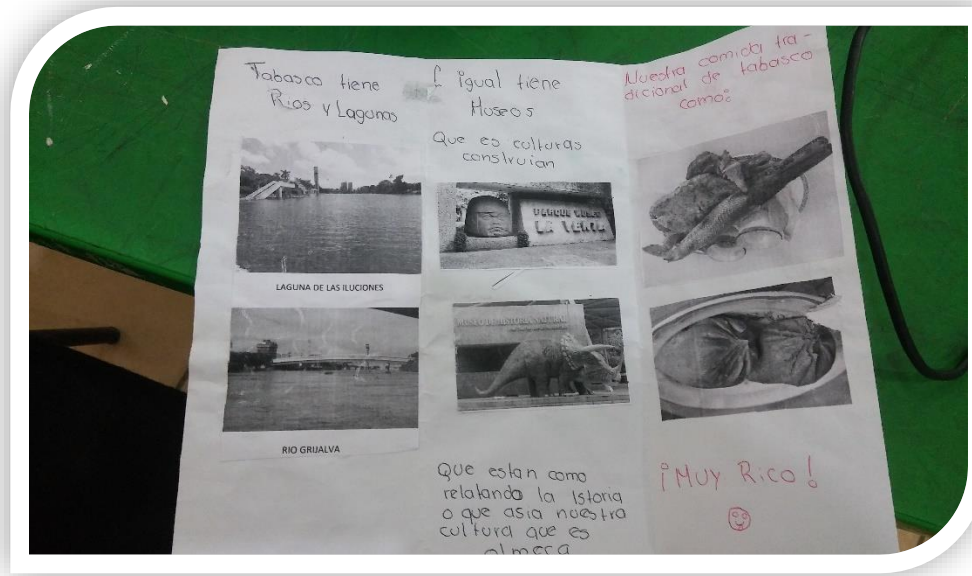 Tabasco tiene
Rios y Lagunas
LAGUNA DE LAS ILUCIONES
RIO GRIJALVA
igual tiene
Museos
Que es culturas
construian
PARQUE MUSEO
LA VENTA
MUSEO DE HISTORIA NATURAL
Que estan como
relatando la Istoria
o que asia nuestra
cultura que es
olmeca
Nuestra comida tra-
dicional de tabasco
como:
¡MUY Rico!